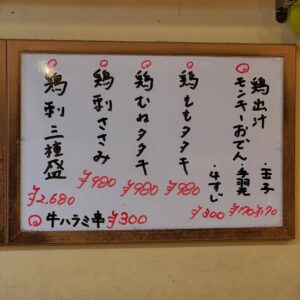 鶏出汁
モンキーおでん
・玉子 ¥170
・手羽元 ¥170
・牛すじ ¥300
鶏ももタタキ ¥980
鶏むねタタキ ¥980
鶏刺ささみ ¥980
鶏刺三種盛 ¥2,680
牛ハラミ串 ¥300